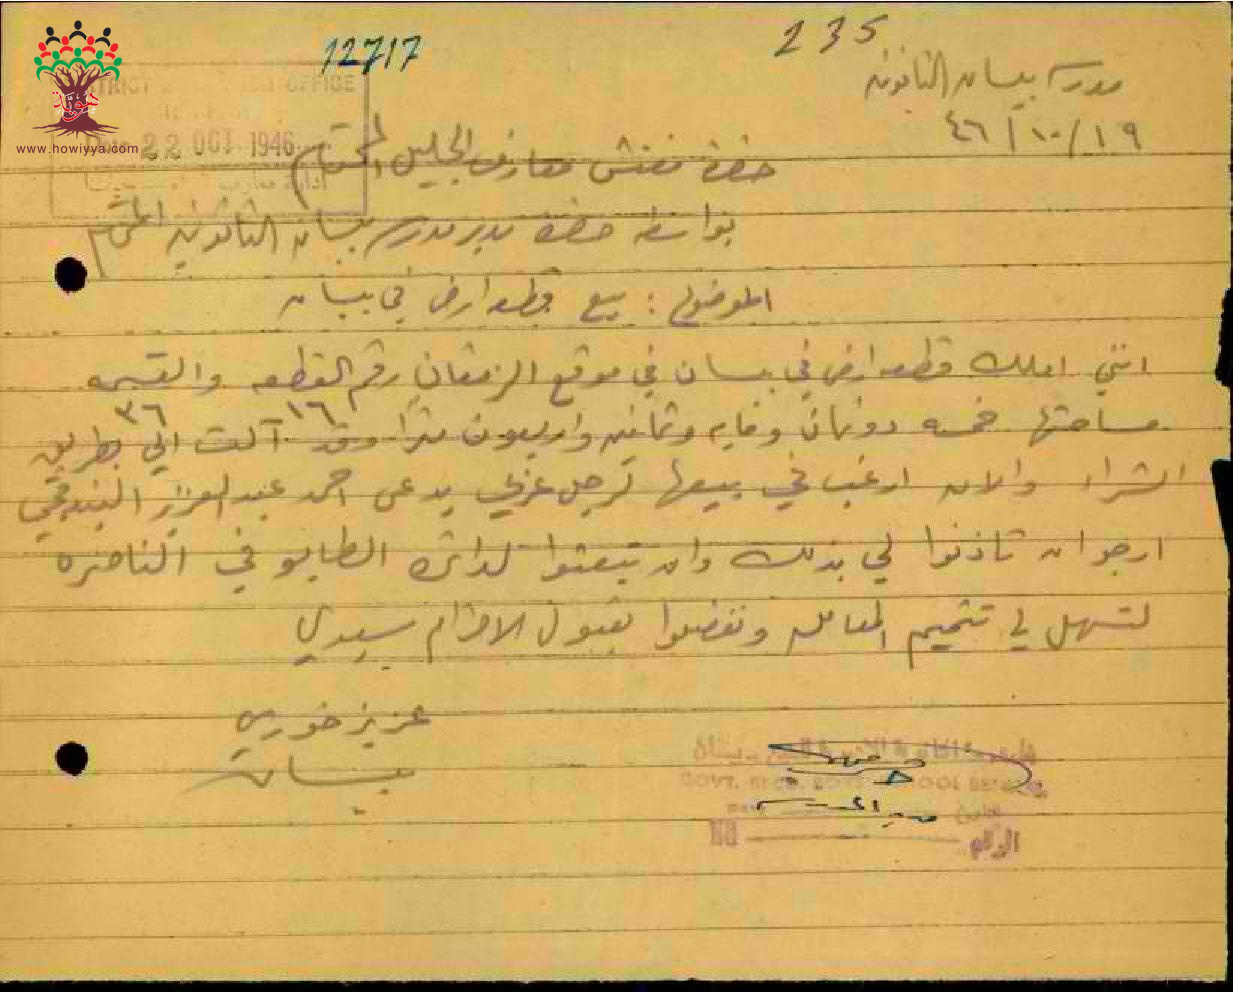 235
12717
مدرسة بيسان الثانوية
١٩/١٠/٤٦
DISTRICT OFFICE
22 OCT 1946
هوية
www.howiyya.com
حضرة مفتش معارف الجليل المحترم
بواسطة حضرة مدير مدرسة بيسان الثانوية المحترم
الموضوع : بيع قطعة ارض في بيسان
انني املك قطعة ارض في بيسان في موقع رقم القطعة والقسيمة
١٦ ٣٦
مساحتها خمسة دونمات ومايه وثمانيه واربعون مترا وقد آلت الي بطريق
الشراء والان ارغب في بيعها لرجل عربي يدعى احمد عبد العزيز
ارجو ان تاذنوا لي بذلك وان تبعثوا لدائرة الطابو في الناصره
لتسهل لي تتميم المعامله وتفضلوا بقبول الاحترام سيدي
عزيز خوري
بيسان
GOVT. SCHOOL
الرقم